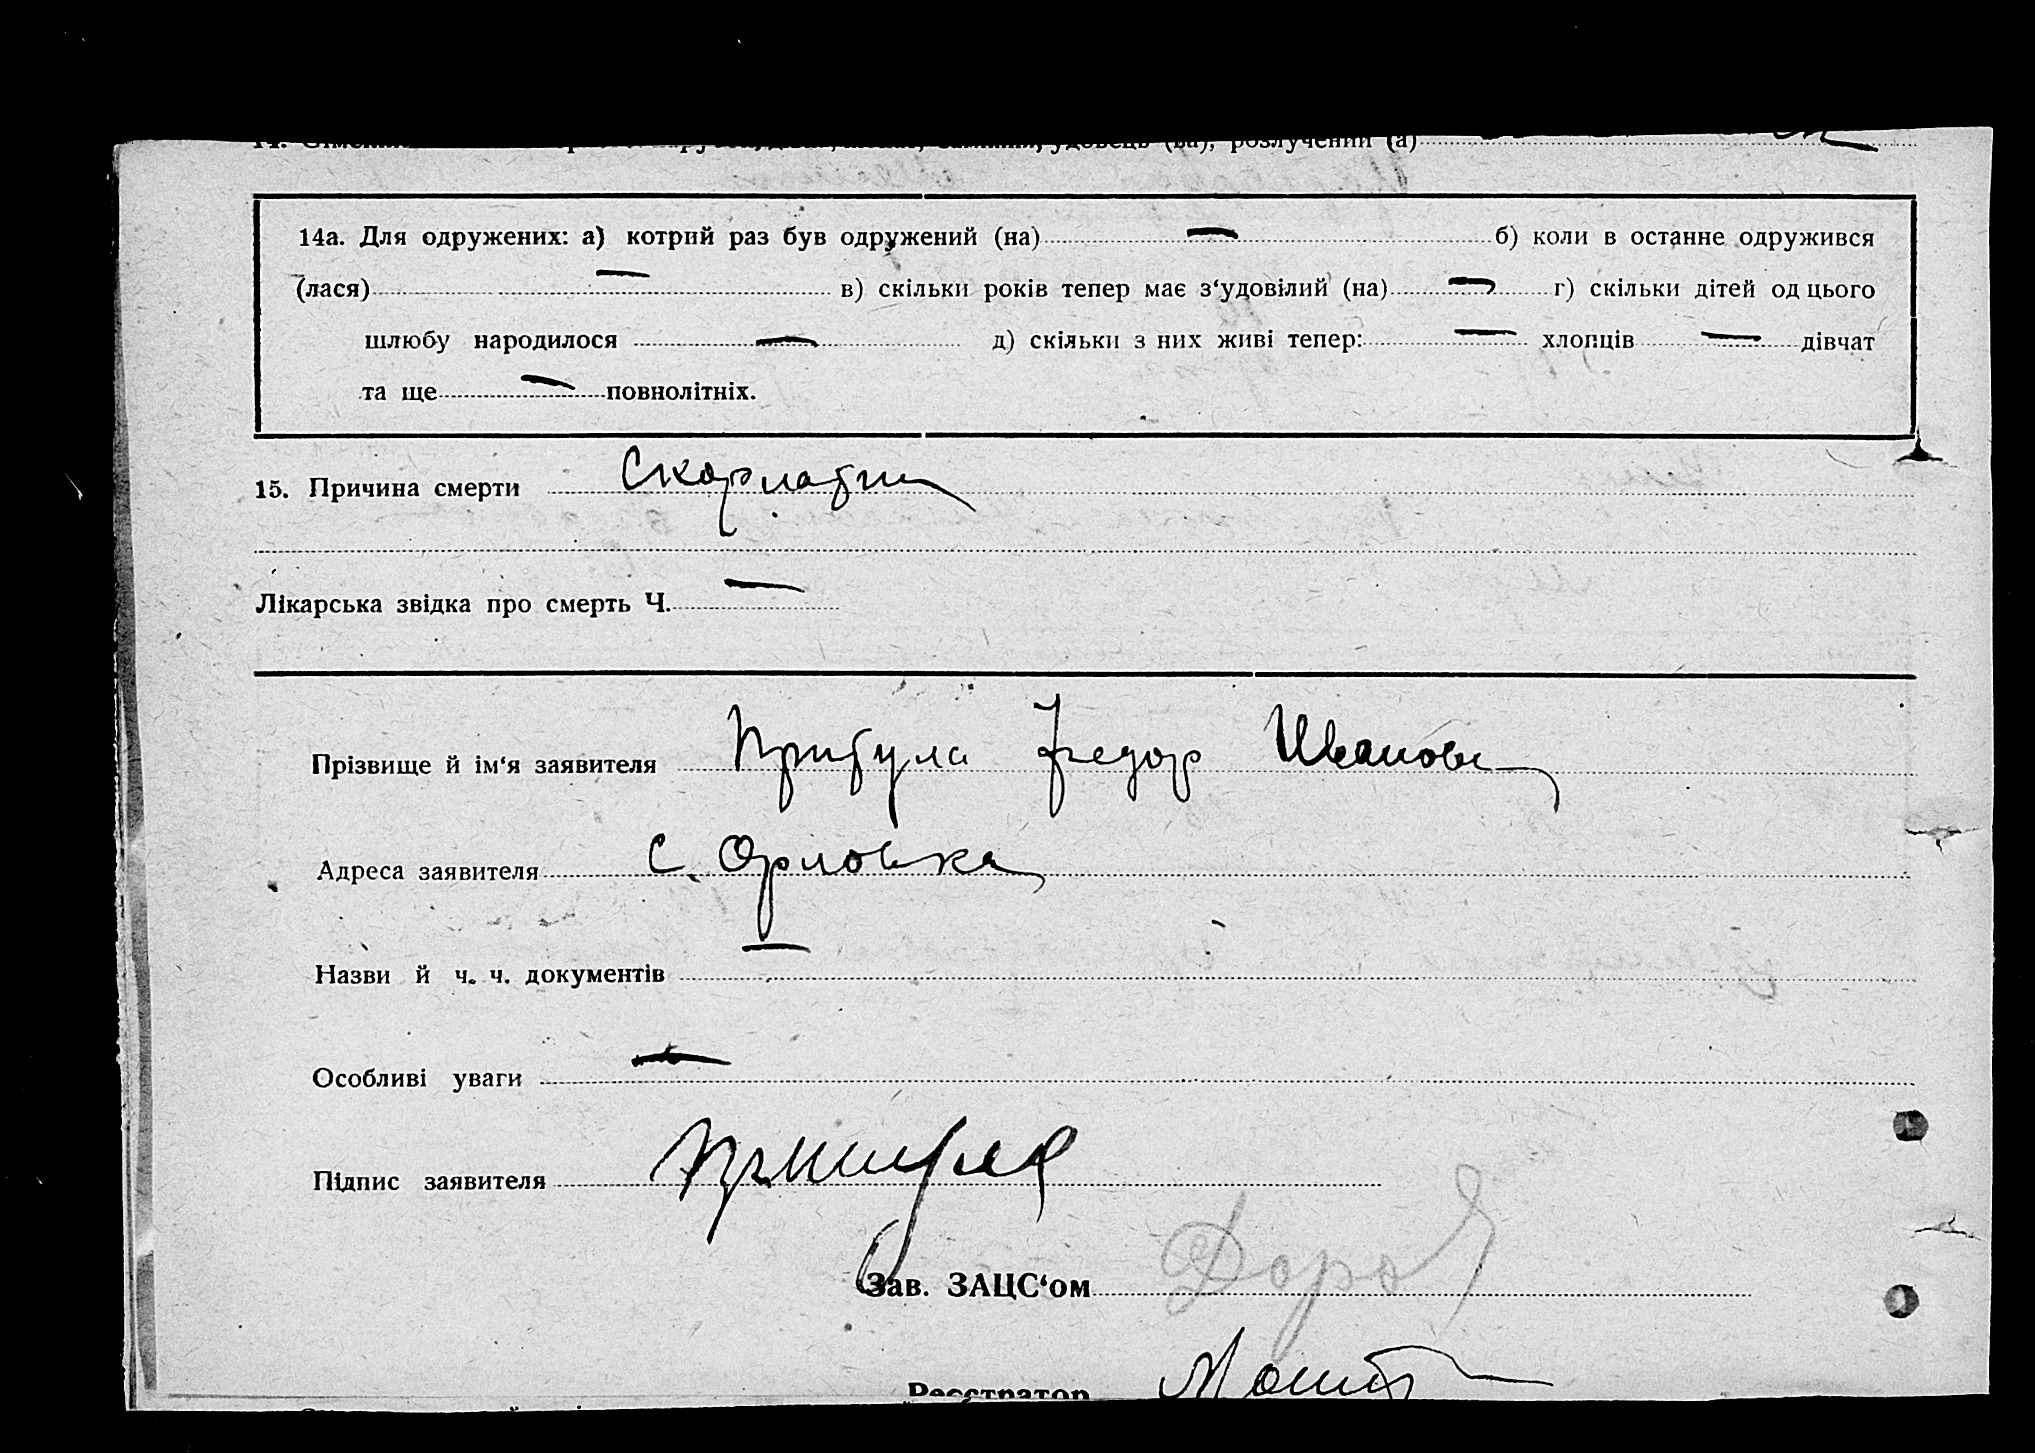 розлучений (а)
14а. Для одружених: а) котрий раз був одружений (на) — б) коли в останне одружився
(лася) — в) скільки років тепер має з‘удовілий (на) — г) скільки дітей од цього
шлюбу народилося — д) скільки з них живі тепер: — хлопців — дівчат
та ще — повнолітніх.
15. Причина смерти Скарлатина
Лікарська звідка про смерть Ч. —
Прізвище й ім‘я заявителя Притула Федор Иванович
Адреса заявителя с. Орловка
Назви й ч. ч. документів —
Особливі уваги —
Підпис заявителя Притула
Зав. ЗАЦС‘ом
Реєстратор